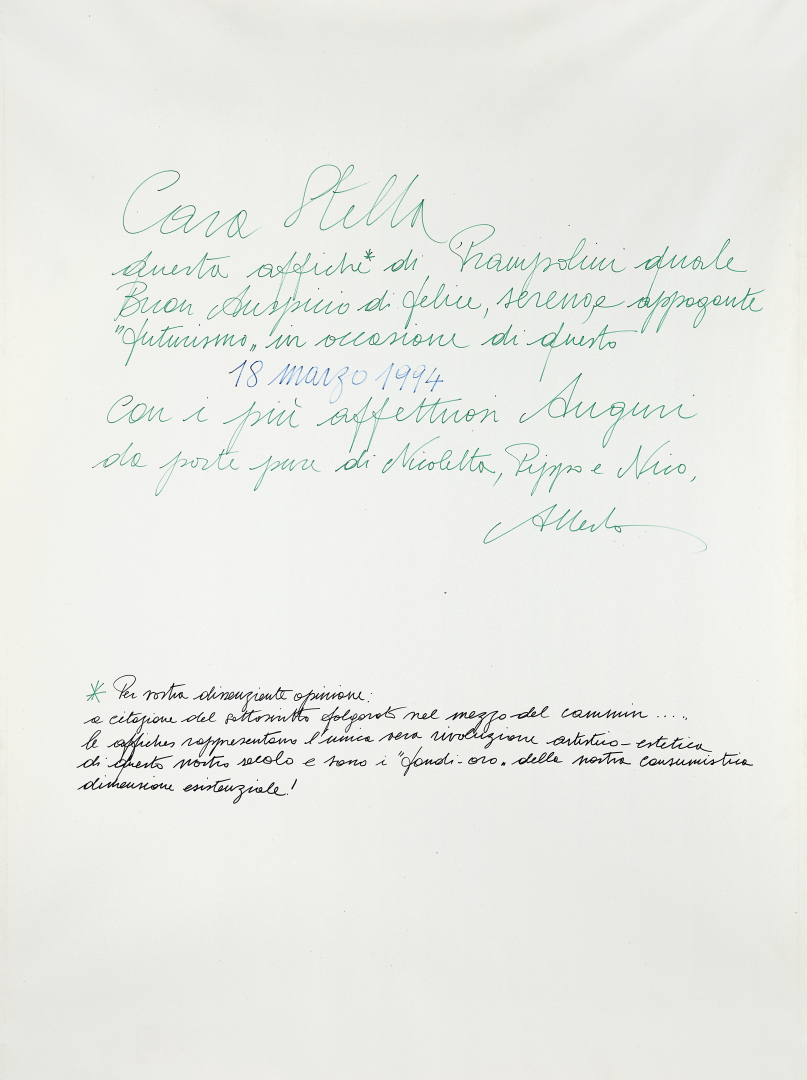 Cara Stella
questa affiche* di Prampolini quale
Buon Auspicio di felice, sereno e appagante
"futurismo„ in occasione di questo
18 marzo 1994
con i più affettuosi Auguri
da parte pure di Nicoletta, Pippo e Nico,
Alberto
* Per vostra dissenziente opinione:
a citazione del sottoscritto folgorato nel mezzo del cammin .....
le affiches rappresentano l'unica vera rivoluzione artistico-estetica
di questo nostro secolo e sono i "fondi-oro„ della nostra consumistica
dimensione esistenziale!